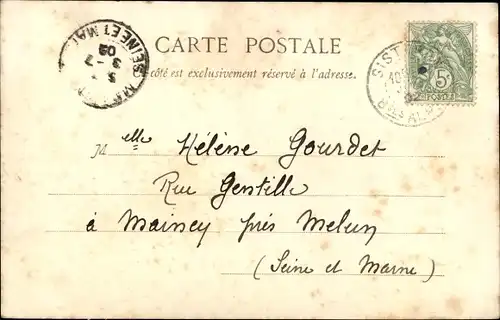 CARTE POSTALE
côté est exclusivement réservé à l'adresse.
SEINE ET MAR
5
3 -7
02
SIST
Bses AL
5c
Melle Hélène Gourdet
Rue Gentille
à Maincy près Melun
(Seine et Marne)